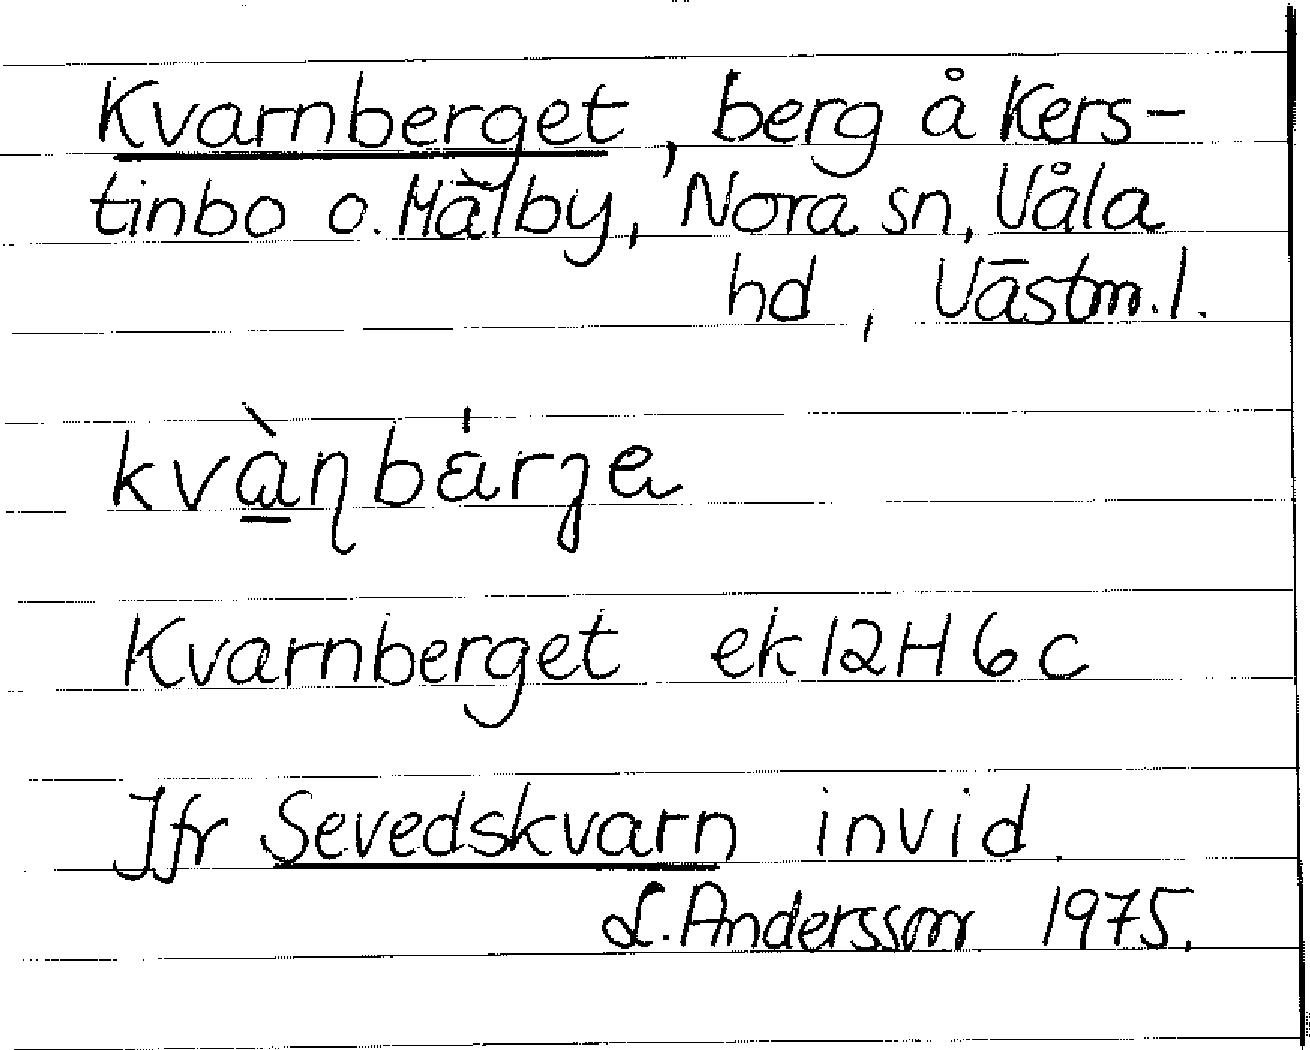 Kvarnberget, berg å Kers-
tinbo o. Mälby, Nora sn, Våla
hd, Västm. l.
kvànbärje
Kvarnberget ek 12H 6c
Jfr Sevedskvarn invid.
L. Andersson 1975.